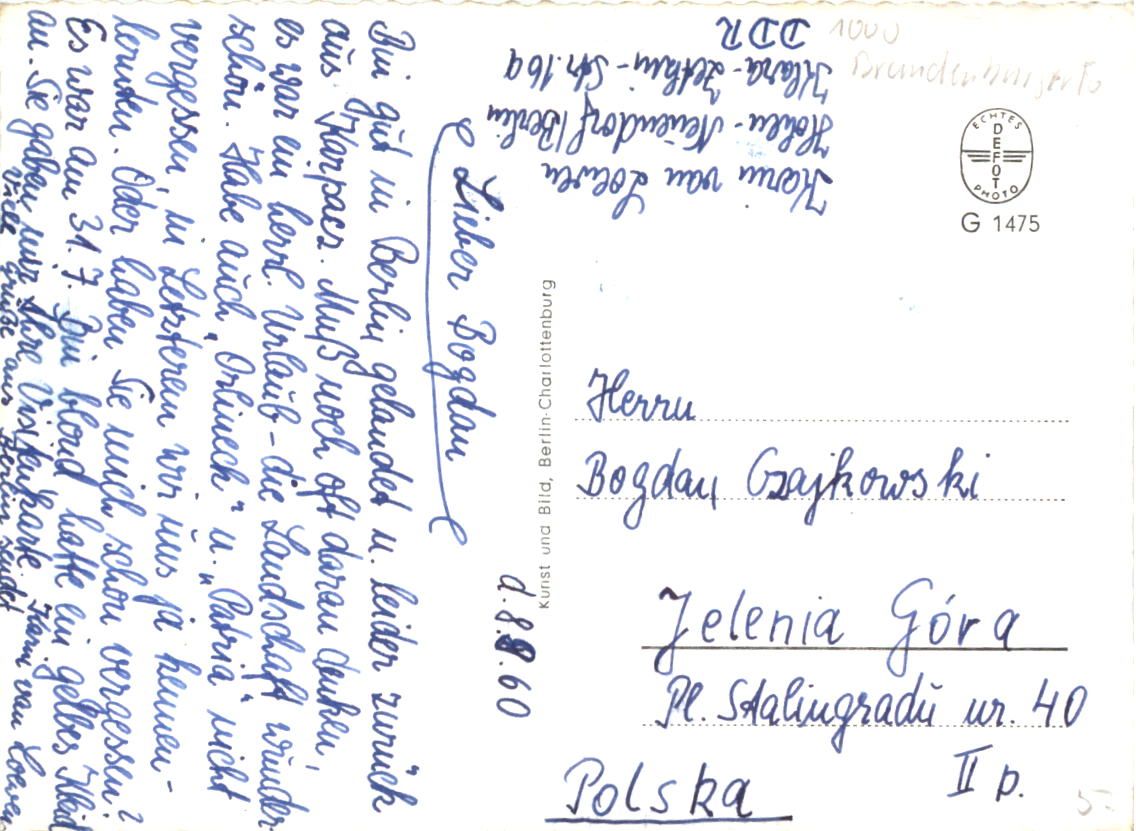 d. 8.8.60
Lieber Bogdan
Bin gut in Berlin gelandet u. leider zurück
aus Karpacz. Muß noch oft daran denken,
es war ein herrl. Urlaub - die Landschaft wunder-
schön. Habe auch „Orlineck" u. „Patria" nicht
vergessen, in Letzterem wir uns ja kennen-
lernten. Oder haben Sie mich schon vergessen?
Es war am 31.7. Bin blond, hatte ein gelbes Kleid
an. Sie gaben mir Ihre Visitenkarte.
Viele Grüße aus Berlin sendet Karin van Loewen
Karin van Loewen
Hohen-Neuendorf/Berlin
Klara-Zetkin-Str. 16a
DDR
1000
Brandenburger To
ECHTES
DEFOT
PHOTO
G 1475
Kunst und Bild, Berlin-Charlottenburg
Herrn
Bogdan Czajkowski
Jelenia Góra
Pl. Stalingradu nr. 40
II p.
Polska
5.-